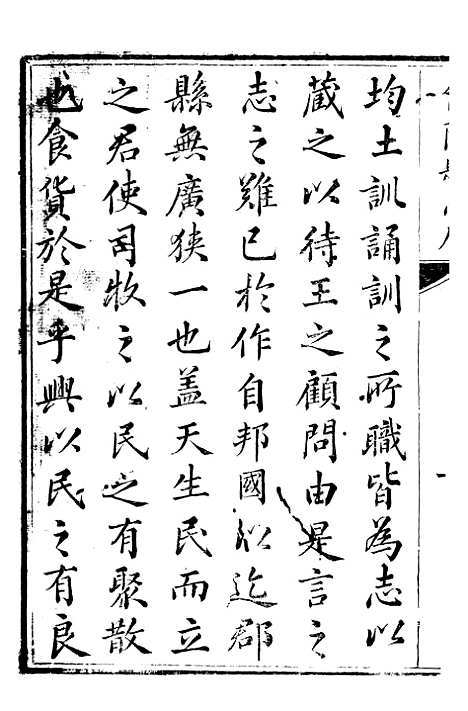 均土訓誦訓之所職皆為志以
藏之以待王之顧問由是言之
志之難已於作自邦國以迄郡
縣無廣狹一也盖天生民而立
之君使司牧之以民之有聚散
也食貨於是乎興以民之有良